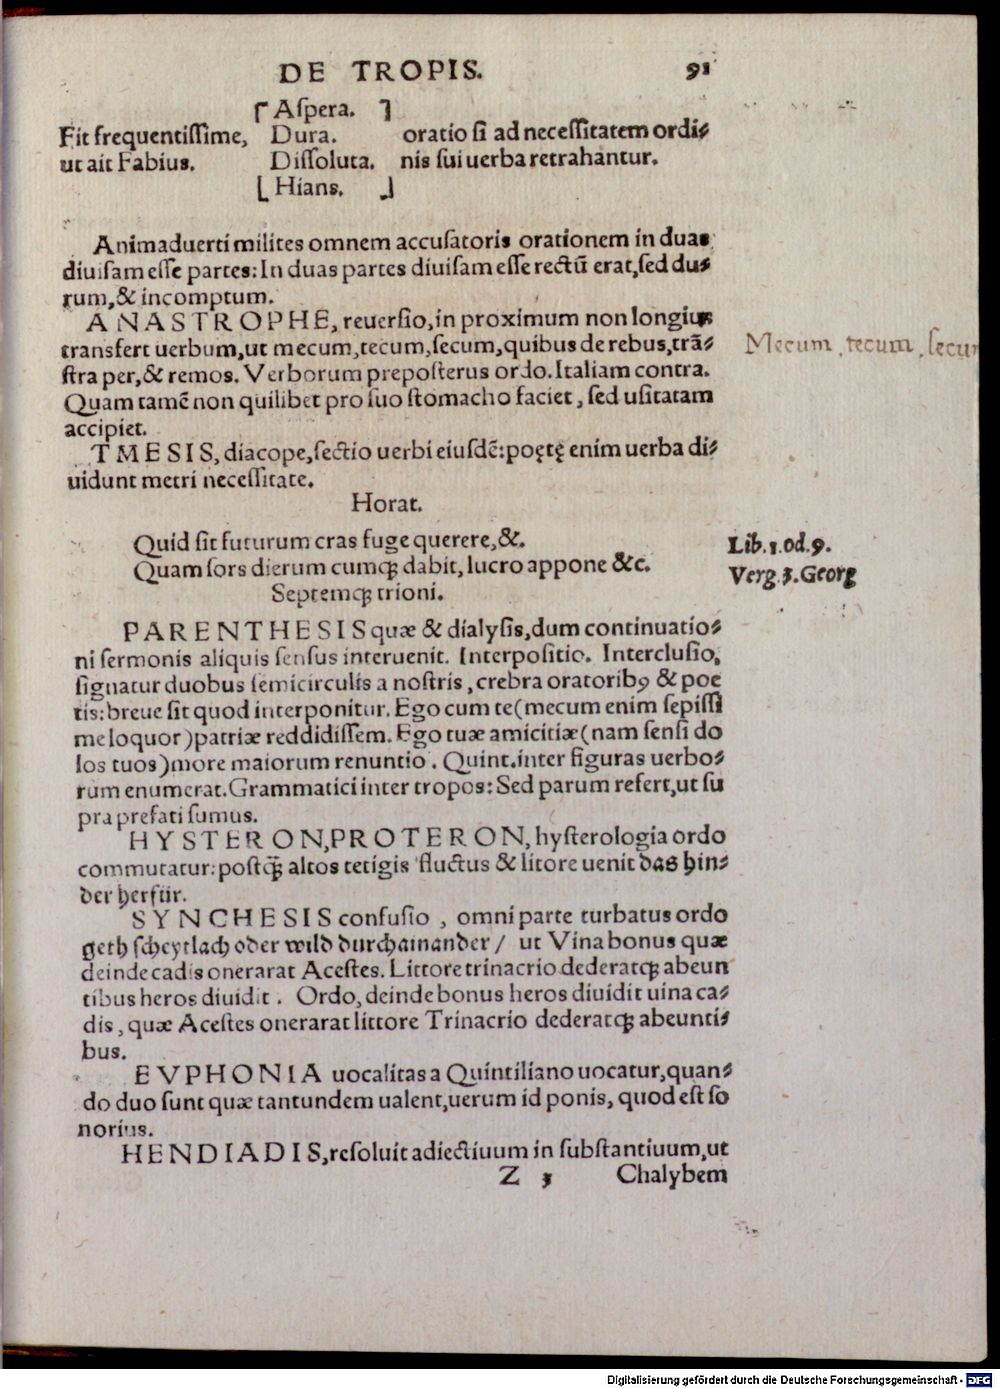 DE TROPIS. 91
⌈ Aſpera. ⌉
Fit frequentiſſime, Dura. oratio ſi ad neceſſitatem ordi⸗
ut ait Fabius. Diſſoluta. nis ſui uerba retrahantur.
⌊ Hians. ⌋
Animaduerti milites omnem accuſatoris orationem in duas
diuiſam eſſe partes: In duas partes diuiſam eſſe rectū erat, ſed du⸗
rum, & incomptum.
ANASTROPHE, reuerſio, in proximum non longius
transfert uerbum, ut mecum, tecum, ſecum, quibus de rebus, trā⸗
ſtra per, & remos. Verborum prepoſterus ordo. Italiam contra.
Mecum, tecum, ſecum
Quam tamē non quilibet pro ſuo ſtomacho faciet, ſed uſitatam
accipiet.
TMESIS, diacope, ſectio uerbi eiuſdē: poętę enim uerba di⸗
uidunt metri neceſſitate.
Horat.
Quid ſit futurum cras fuge querere, &.
Lib. 1. Od. 9.
Quam ſors dierum cumqꝫ dabit, lucro appone &c.
Verg. 3. Georg
Septemqꝫ trioni.
PARENTHESIS quæ & dialyſis, dum continuatio⸗
ni ſermonis aliquis ſenſus interuenit. Interpoſitio. Intercluſio,
ſignatur duobus ſemicirculis a noſtris, crebra oratoribꝰ & poe
tis: breue ſit quod interponitur. Ego cum te (mecum enim ſepiſſi
me loquor) patriæ reddidiſſem. Ego tuæ amicitiæ (nam ſenſi do
los tuos) more maiorum renuntio. Quint. inter figuras uerbo⸗
rum enumerat. Grammatici inter tropos: Sed parum refert, ut ſu
pra prefati ſumus.
HYSTERON, PROTERON, hyſterologia ordo
commutatur: poſtqꝫ̄ altos tetigis fluctus & litore uenit das hin⸗
der herfür.
SYNCHESIS confuſio, omni parte turbatus ordo
geth ſcheytlach oder wild durchainander / ut Vina bonus quæ
deinde cadis onerarat Aceſtes. Littore trinacrio dederatqꝫ abeun
tibus heros diuidit. Ordo, deinde bonus heros diuidit uina ca⸗
dis, quæ Aceſtes onerarat littore Trinacrio dederatqꝫ abeunti⸗
bus.
EVPHONIA uocalitas a Quintiliano uocatur, quan⸗
do duo ſunt quæ tantundem ualent, uerum id ponis, quod eſt ſo
norius.
HENDIADIS, reſoluit adiectiuum in ſubſtantiuum, ut
Z 3 Chalybem
Digitalisierung gefördert durch die Deutsche Forschungsgemeinschaft - DFG